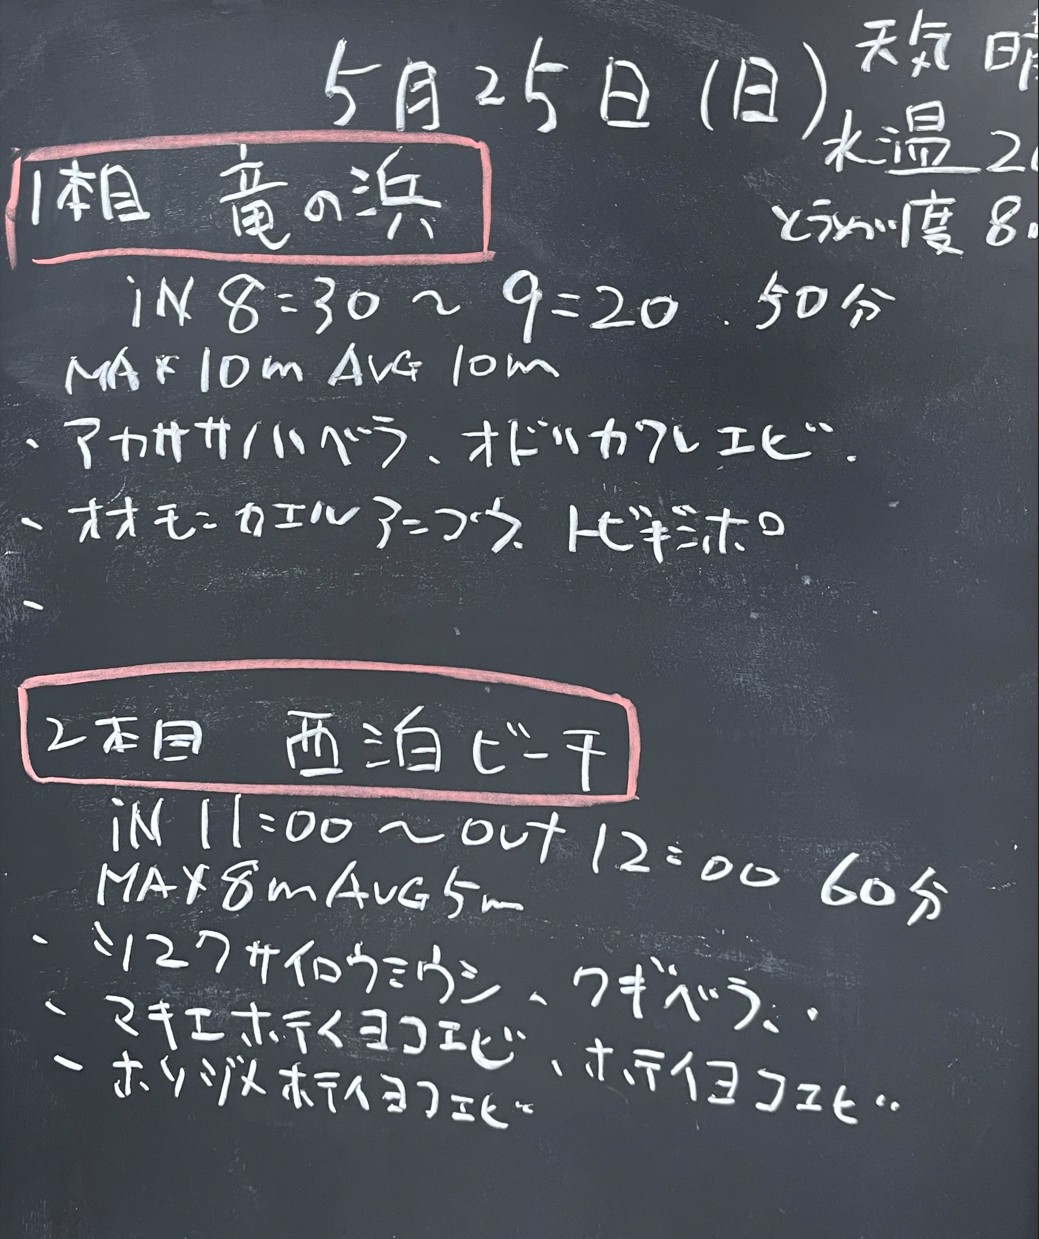 5月25日(日)
天気 晴
水温 2
とうめい度 8.
1本目 竜の浜
iN 8=30 〜 9=20 . 50分
MAX 10m AVG 10m
・アカササノハベラ、オドリカクレエビ.
・オオモンカエルアンコウ、トビギンポ
・
2本目 西泊ビーチ
iN 11=00 〜 out 12=00 60分
MAX 8m AVG 5m
・クサイロウミウシ、クギベラ、.
・マキエホテイヨコエビ、ホテイヨコエビ
・ホソジメホテイヨコエビ